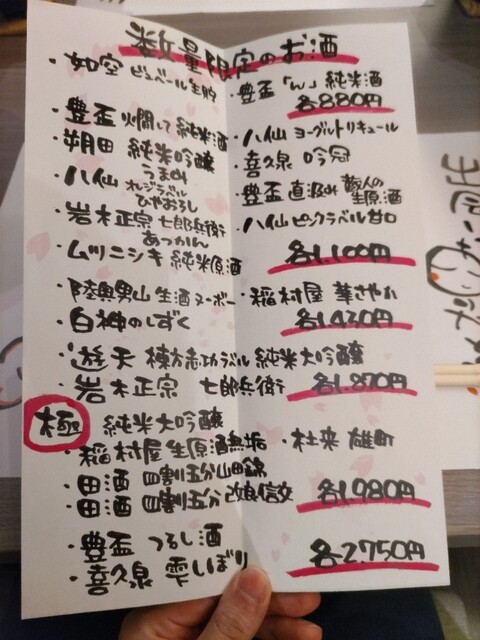 数量限定のお酒
・如空 ピュベール生貯
・豊盃「ん」純米酒
各880円
・豊盃 火燗して純米酒
・朔田 純米吟醸
うまみ
・八仙 オレンジラベル
ひやおろし
・岩木正宗 七郎兵衛
あつかん
・ムツニシキ 純米原酒
・八仙 ヨーグルトリキュール
・喜久泉 吟冠
・豊盃 直汲み 蔵人の生原酒
・八仙 ピンクラベル 甘口
各1,100円
・陸奥男山 生酒 ヌーボー
・白神のしずく
・稲村屋 華さやか
各1,430円
・遊天 棟方志功ラベル 純米大吟醸
・岩木正宗 七郎兵衛
各1,870円
極 純米大吟醸
・稲村屋 生原酒無垢
・田酒 四割五分 山田錦
・田酒 四割五分 改良信交
・杜来 雄町
各1,980円
・豊盃 つるし酒
・喜久泉 雫しぼり
各2,750円